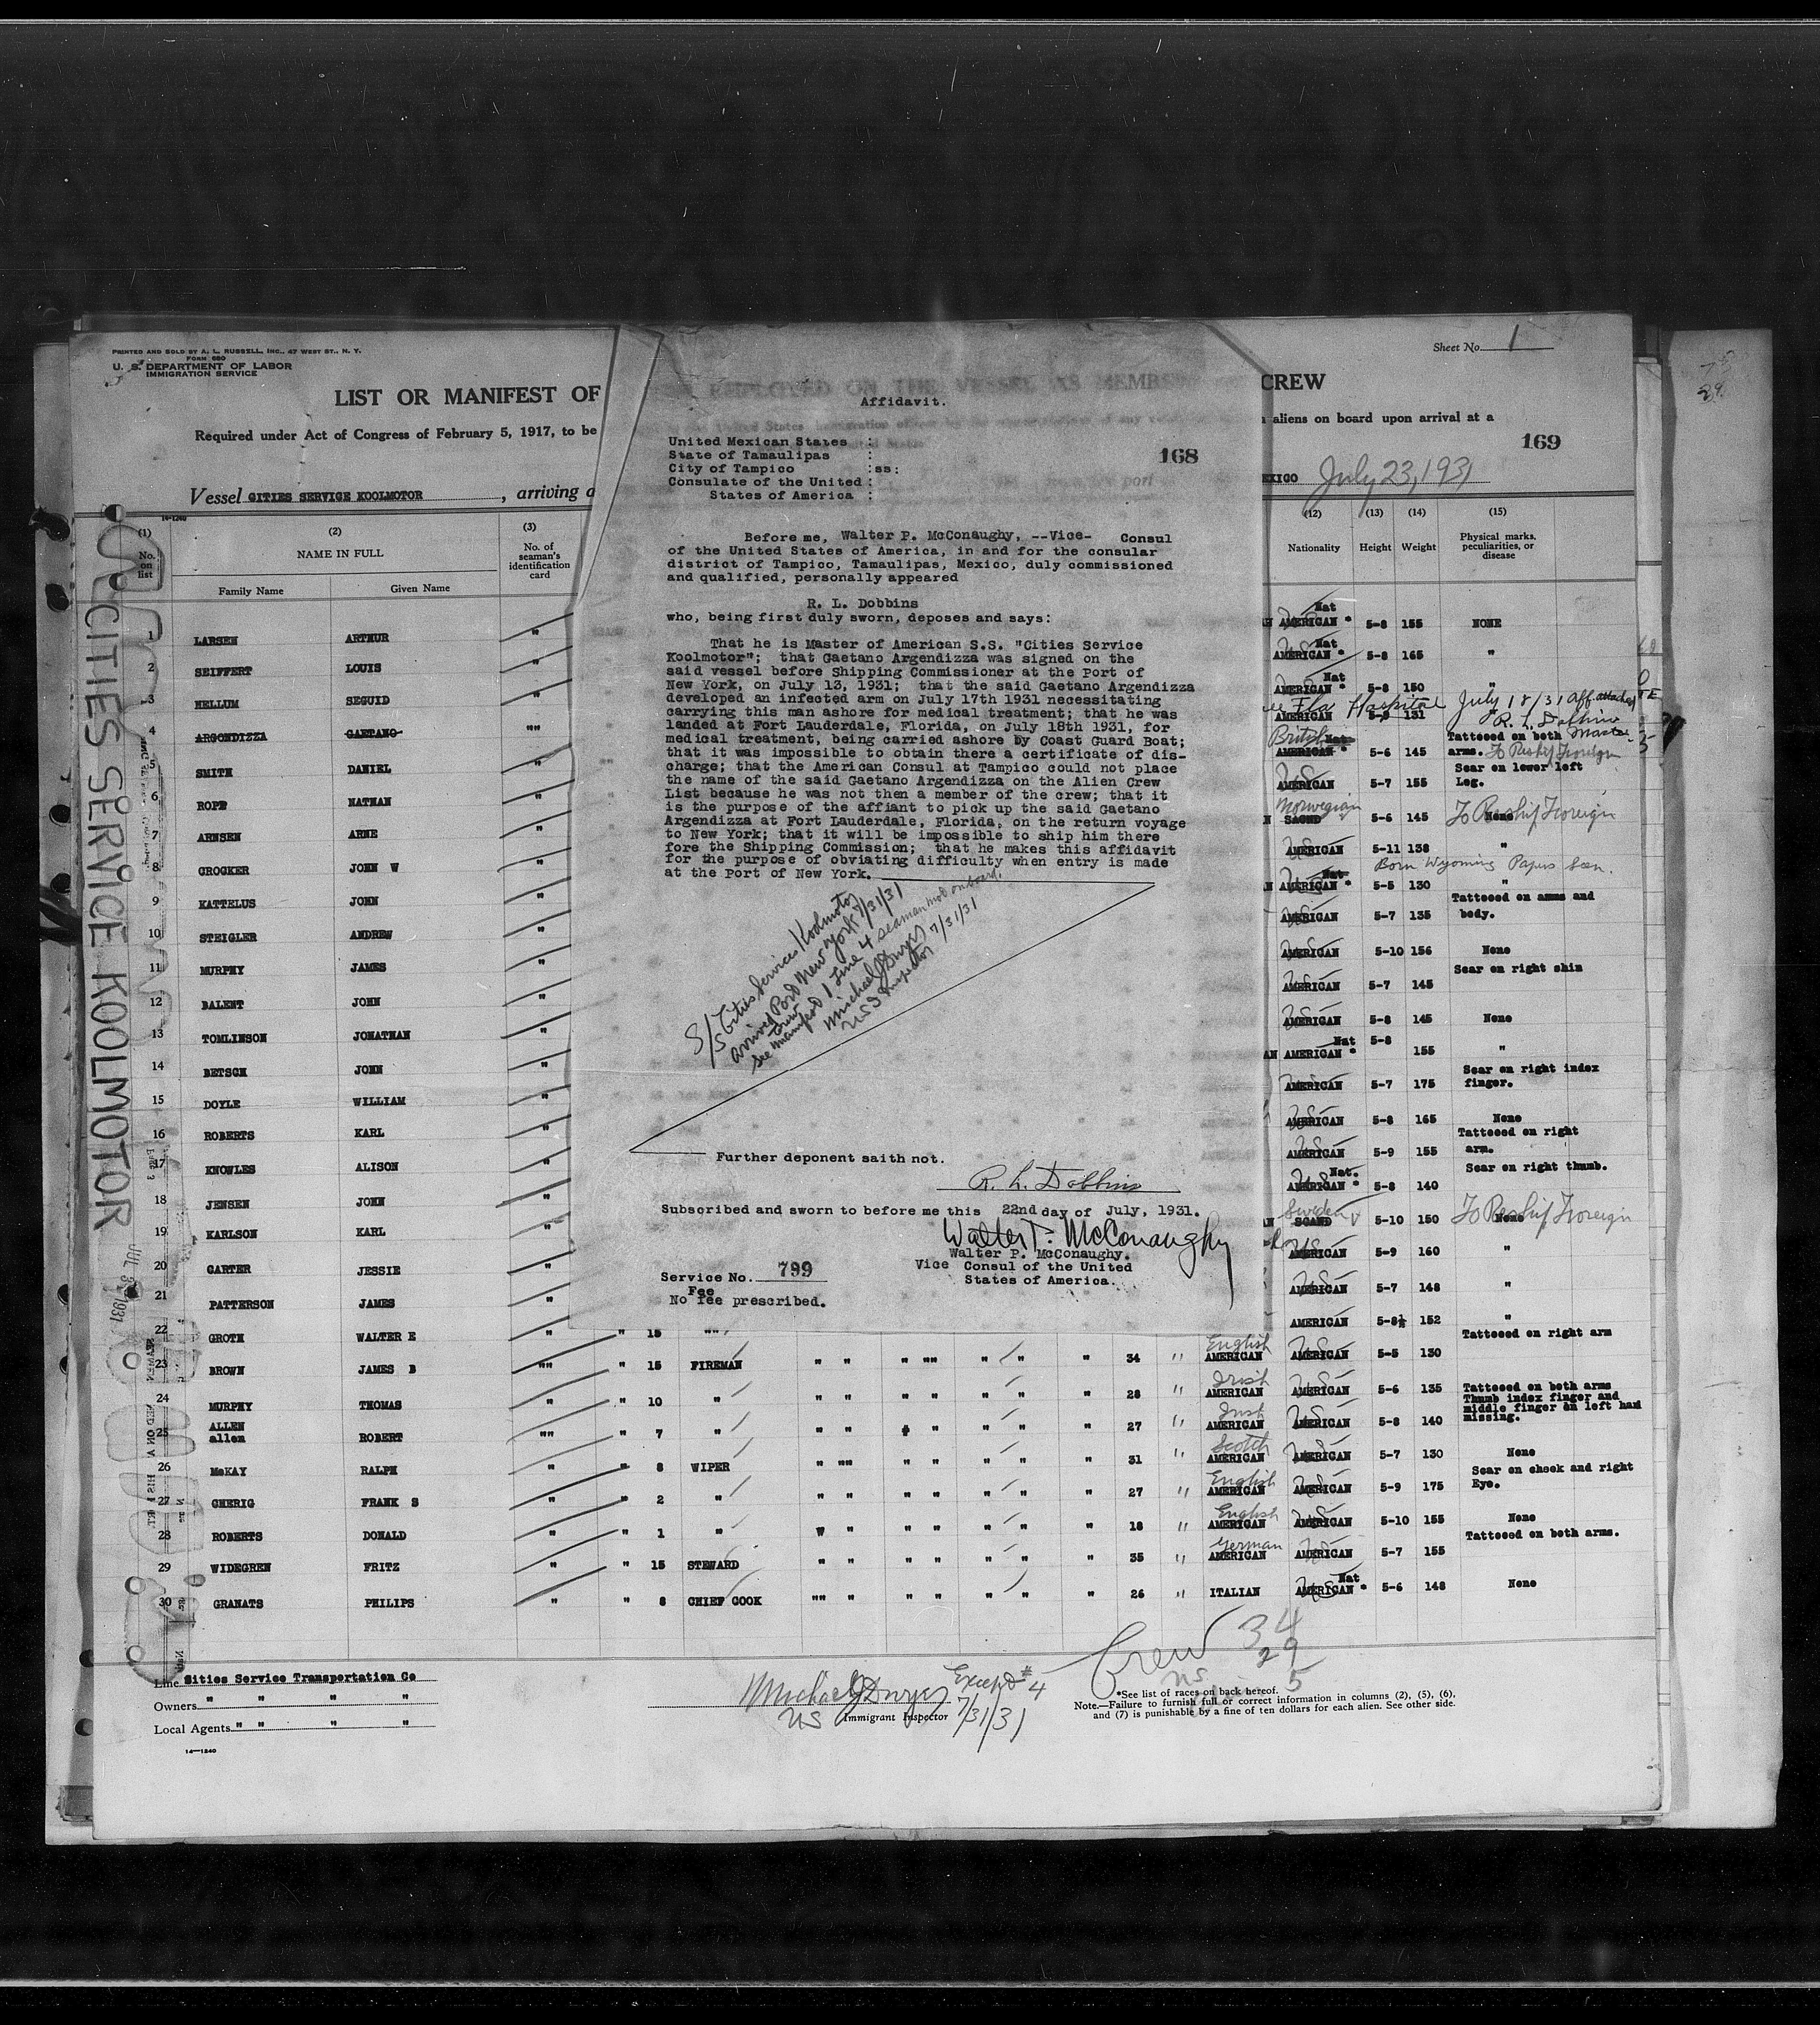 PRINTED AND SOLD BY A. L. RUSSELL, INC., 47 WEST ST., N. Y.
FORM 680
U. S. DEPARTMENT OF LABOR
IMMIGRATION SERVICE
Sheet No. 1
LIST OR MANIFEST OF
CREW
Required under Act of Congress of February 5, 1917, to be
aliens on board upon arrival at a
169
Vessel CITIES SERVICE KOOLMOTOR, arriving
EXICO July 23, 1931
CITIES SERVICE KOOLMOTOR
JUL 3 1931
14-1240
(1) (2) (3)
No. on list
NAME IN FULL
No. of seaman's identification card
Family Name Given Name
(12) (13) (14) (15)
Nationality Height Weight Physical marks, peculiarities, or disease
Affidavit.
168
United Mexican States :
State of Tamaulipas :
City of Tampico :ss:
Consulate of the United :
States of America :
Before me, Walter P. McConaughy, --Vice- Consul
of the United States of America, in and for the consular
district of Tampico, Tamaulipas, Mexico, duly commissioned
and qualified, personally appeared
R. L. Dobbins
who, being first duly sworn, deposes and says:
That he is Master of American S.S. "Cities Service
Koolmotor"; that Gaetano Argendizza was signed on the
said vessel before Shipping Commissioner at the Port of
New York, on July 13, 1931; that the said Gaetano Argendizza
developed an infected arm on July 17th 1931 necessitating
carrying this man ashore for medical treatment; that he was
landed at Fort Lauderdale, Florida, on July 18th 1931, for
medical treatment, being carried ashore by Coast Guard Boat;
that it was impossible to obtain there a certificate of dis-
charge; that the American Consul at Tampico could not place
the name of the said Gaetano Argendizza on the Alien Crew
List because he was not then a member of the crew; that it
is the purpose of the affiant to pick up the said Gaetano
Argendizza at Fort Lauderdale, Florida, on the return voyage
to New York; that it will be impossible to ship him there
fore the Shipping Commission; that he makes this affidavit
for the purpose of obviating difficulty when entry is made
at the Port of New York.
S/S Cities Service Koolmotor
arrived Port New York 7/31/31
See manifest 1 Line 4 seaman not on board.
Michael J Dwyer 7/31/31
US Inspector
Further deponent saith not.
R. L. Dobbins
Subscribed and sworn to before me this 22nd day of July, 1931.
Walter P. McConaughy
Walter P. McConaughy.
Vice Consul of the United
States of America.
Service No. 799
Fee
No fee prescribed.
1 LARSEN ARTHUR " Nat AMERICAN * 5-8 155 NONE
2 SEIFFERT LOUIS " Nat AMERICAN * 5-8 165 "
3 HELLUM SEGUID " Nat AMERICAN * 5-8 150 "
4 ARGONDIZZA GAETANO "" Fla Hospital July 18/31 Aff attached AMERICAN 5-9 131 R. L. Dobbins Master
5 SMITH DANIEL " British Nat AMERICAN * 5-6 145 Tattooed on both arms. To Reship Foreign
6 ROPP NATHAN " AMERICAN 5-7 155 Scar on lower left Leg.
7 ARNSEN ARNE " Norwegian SCAND 5-6 145 None To Reship Foreign
8 CROCKER JOHN W " AMERICAN 5-11 138 "
Born Wyoming Papers Seen.
9 KATTELUS JOHN " Nat AMERICAN * 5-5 130 "
10 STEIGLER ANDREW " AMERICAN 5-7 135 Tattooed on amms and body.
11 MURPHY JAMES " AMERICAN 5-10 156 None
12 BALENT JOHN " AMERICAN 5-7 145 Scar on right shin
13 TOMLINSON JONATHAN " AMERICAN 5-8 145 None
14 BETSCH JOHN " Nat AMERICAN * 5-8 155 "
15 DOYLE WILLIAM " AMERICAN 5-7 175 Scar on right index finger.
16 ROBERTS KARL " AMERICAN 5-8 165 None
17 KNOWLES ALISON " AMERICAN 5-9 155 Tattooed on right arm.
18 JENSEN JOHN " Nat. AMERICAN * 5-8 140 Scar on right thumb.
19 KARLSON KARL " Sweden SCAND 5-10 150 None To Reship Foreign
20 CARTER JESSIE " AMERICAN 5-9 160 "
21 PATTERSON JAMES " AMERICAN 5-7 148 "
22 GROTH WALTER E " " 15 "" AMERICAN 5-8½ 152 "
23 BROWN JAMES B "" " 15 FIREMAN " " " "" " " " 34 " English AMERICAN US AMERICAN 5-5 130 Tattooed on right arm
24 MURPHY THOMAS " " 10 " " " " " " " " 28 " Irish AMERICAN US AMERICAN 5-6 135 Tattooed on both arms
25 ALLEN allen ROBERT "" " 7 " " " " " " " 27 " Irish AMERICAN US AMERICAN 5-8 140 Thumb index finger and middle finger on left hand missing.
26 McKAY RALPH " " 8 WIPER " "" " " " " " 31 " Scotch AMERICAN US AMERICAN 5-7 130 None
27 GHERIG FRANK S " " 2 " " " " " " " " 27 " English AMERICAN US AMERICAN 5-9 175 Scar on cheek and right Eye.
28 ROBERTS DONALD " " 1 " " " " " " " 18 " English AMERICAN US AMERICAN 5-10 155 None
29 WIDEGREN FRITZ " " 15 STEWARD " " " " " " " 35 " German AMERICAN US AMERICAN 5-7 155 Tattooed on both arms.
30 GRANATS PHILIPS " " 8 CHIEF COOK "" " " " " " " 26 " ITALIAN US Nat AMERICAN * 5-6 148 None
Crew 34
US 29
5
Line Cities Service Transportation Co
Owners " " " "
Local Agents " " " "
Michael J Dwyer Except #4
US Immigrant Inspector 7/31/31
*See list of races on back hereof.
Note.—Failure to furnish full or correct information in columns (2), (5), (6),
and (7) is punishable by a fine of ten dollars for each alien. See other side.
14—1240